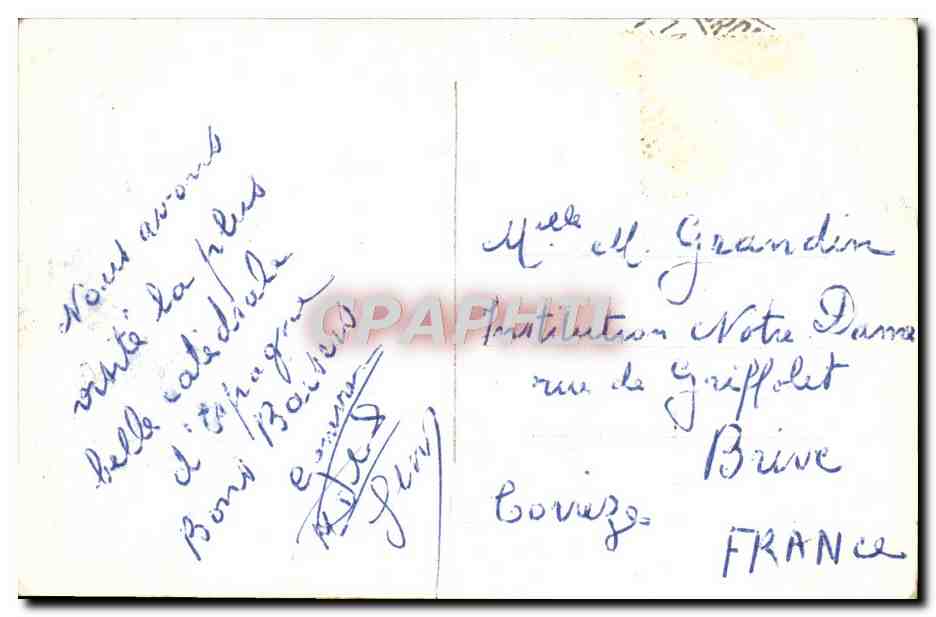 Nous avons
visité la plus
belle catédrale
d'espagne
Bons Baisers
Mlle M. Grandin
Institution Notre Dame
rue de Griffolet
Brive
Corrèze
FRANCE
CPAPHIL